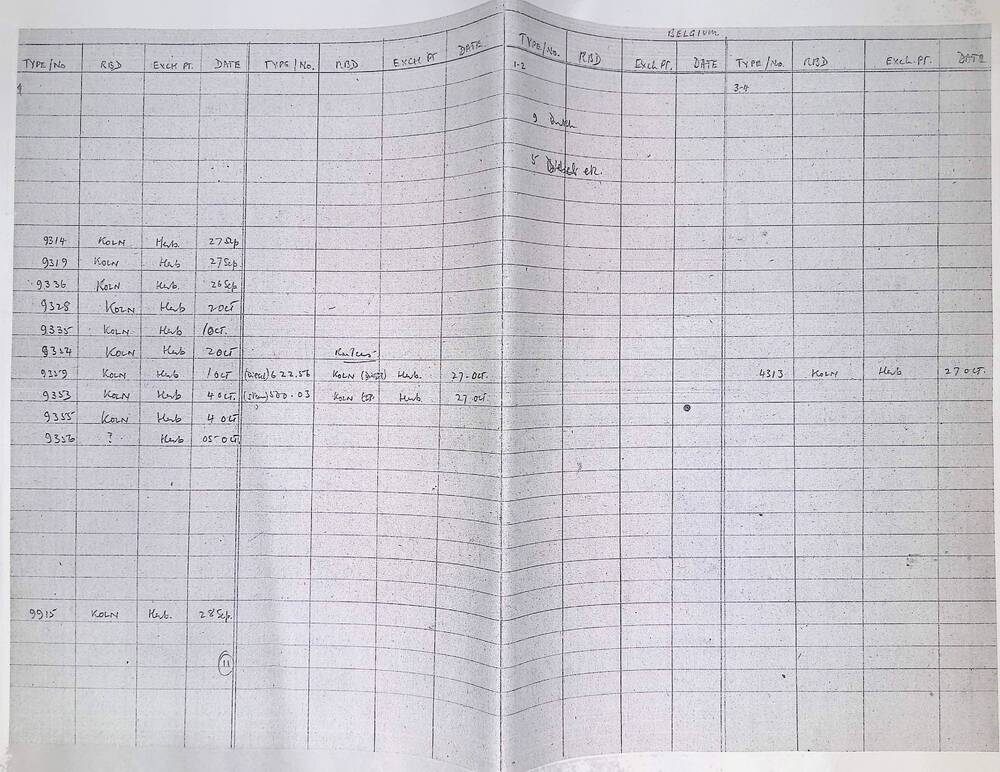 BELGIUM
TYPE/No RBD EXCH PT. DATE TYPE/No. RBD EXCH PT DATE TYPE/No. RBD EXCH.PT. DATE TYPE/No. RBD EXCH.PT. DATE
1-2
3-4
9
5 etc.
9314 KOLN Herb. 27 Sep
9319 KOLN Herb 27 Sep
9336 KOLN Herb. 26 Sep
9328 KOLN Herb 2 OCT
9335 KOLN Herb 1 OCT.
9354 KOLN Herb 2 OCT
9359 KOLN Herb 1 OCT (Diesel) 622.56 KOLN (Diesel) Herb. 27.Oct. 4313 KOLN Herb 27 OCT.
9353 KOLN Herb. 4 Oct. (Steam) 500.03 KOLN Herb 27.Oct.
9355 KOLN Herb 4 Oct
9356 ? Herb 05-Oct.
9915 KOLN Herb. 28 Sep.
11